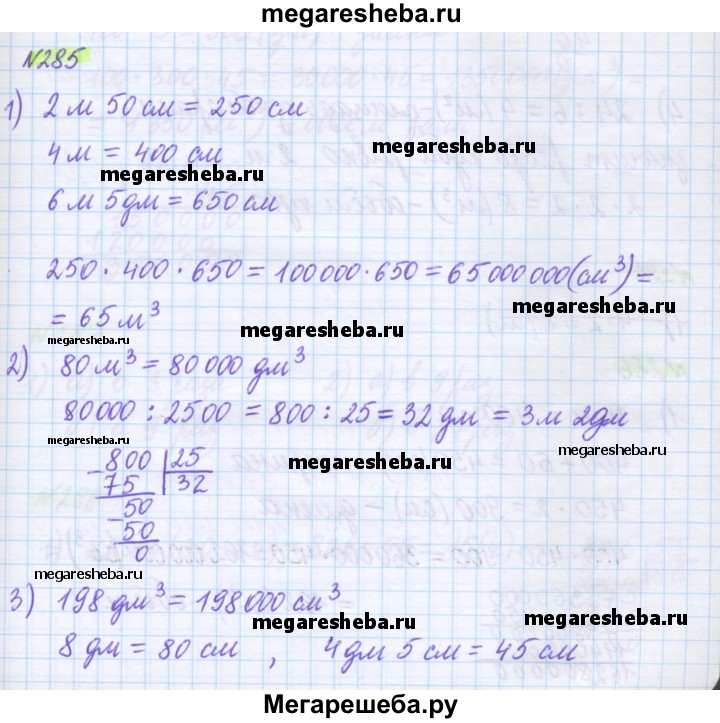 megaresheba.ru
№285
1) 2 м 50 см = 250 см
4 м = 400 см
megaresheba.ru
megaresheba.ru
6 м 5 дм = 650 см
250 · 400 · 650 = 100 000 · 650 = 65 000 000 (см³) =
megaresheba.ru
= 65 м³
megaresheba.ru
megaresheba.ru
2) 80 м³ = 80 000 дм³
80000 : 2500 = 800 : 25 = 32 дм = 3 м 2 дм
megaresheba.ru
megaresheba.ru
800 25
75 32
megaresheba.ru
50
50
0
megaresheba.ru
megaresheba.ru
3) 198 дм³ = 198 000 см³
megaresheba.ru
megaresheba.ru
8 дм = 80 см , 4 дм 5 см = 45 см
Мегарешеба.ру